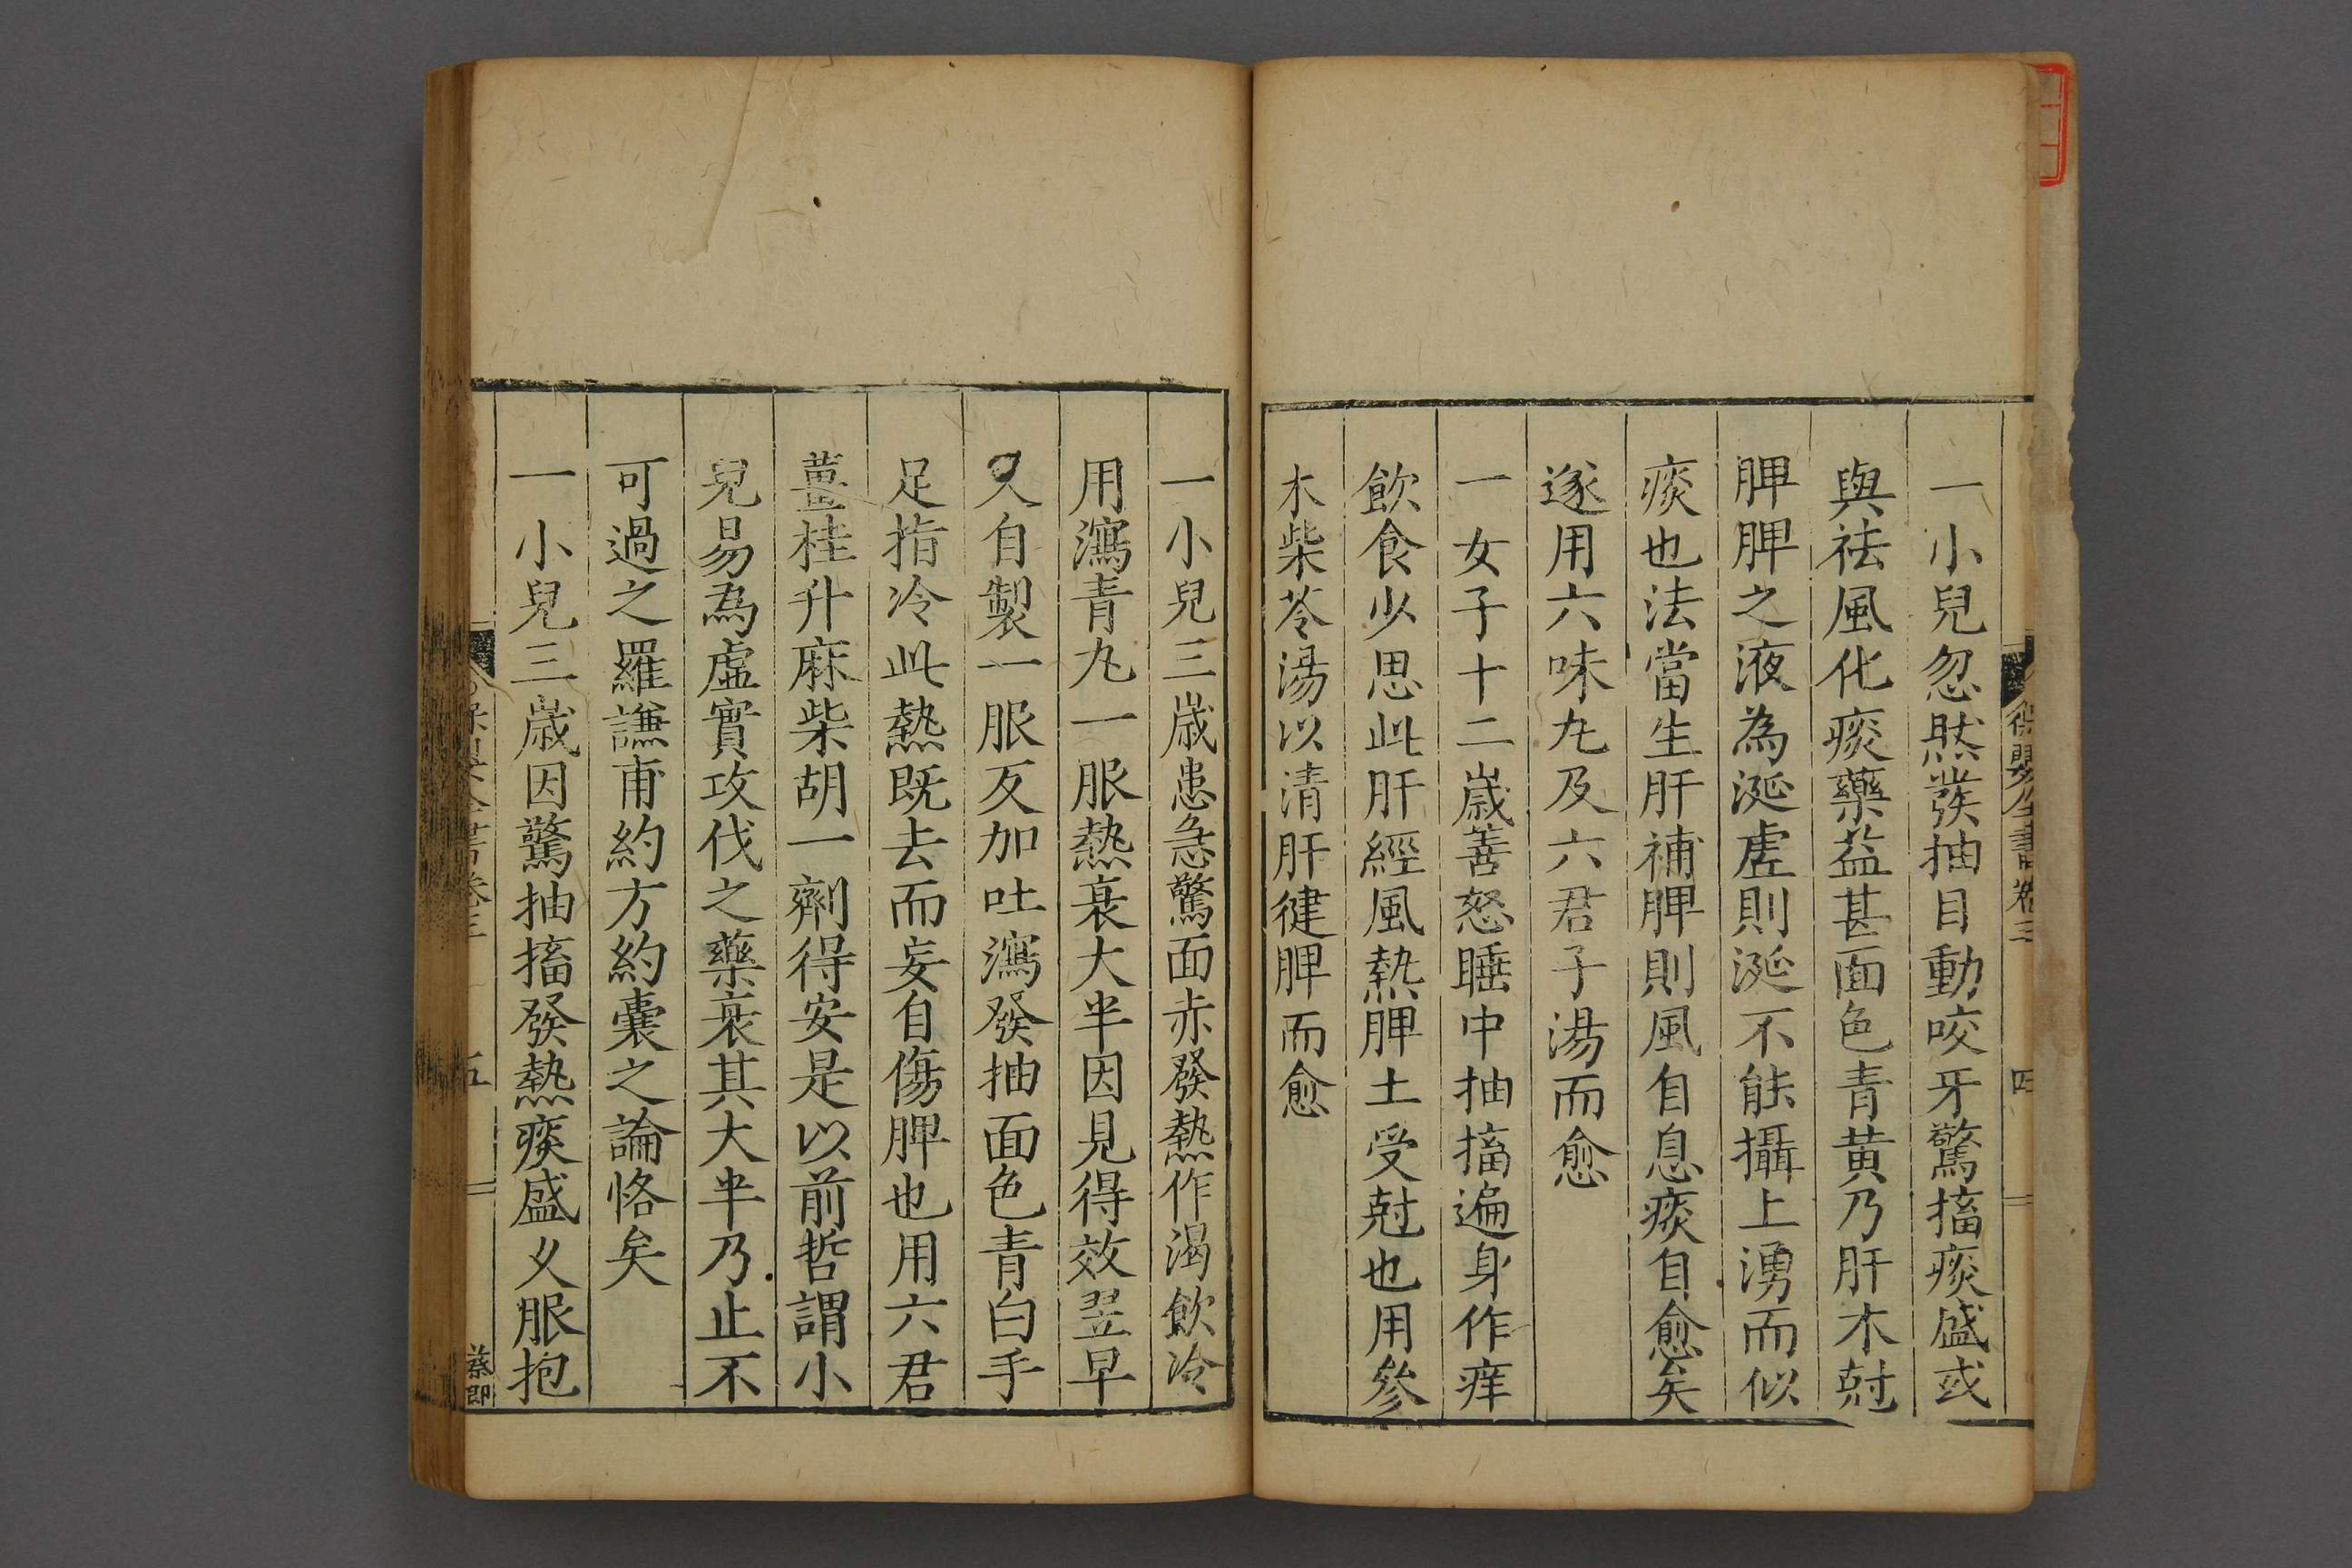 一小兒忽然發抽目動咬牙驚搐痰盛或
與祛風化痰藥益甚面色青黃乃肝木尅
脾脾之液為涎虗則涎不能攝上湧而似
痰也法當生肝補脾則風自息痰自愈矣
遂用六味丸及六君子湯而愈
一女子十二歲善怒睡中抽搐遍身作痒
飲食少思此肝經風熱脾土受尅也用參
木柴苓湯以清肝健脾而愈
保嬰全書卷三 四
一小兒三歲患急驚面赤發熱作渴飲冷
用瀉青丸一服熱衰大半因見得效翌早
又自製一服反加吐瀉發抽面色青白手
足指冷此熱既去而妄自傷脾也用六君
薑桂升麻柴胡一劑得安是以前哲謂小
兒易為虛實攻伐之藥衰其大半乃止不
可過之羅謙甫約方約囊之論恪矣
一小兒三歲因驚抽搐發熱痰盛久服抱
五